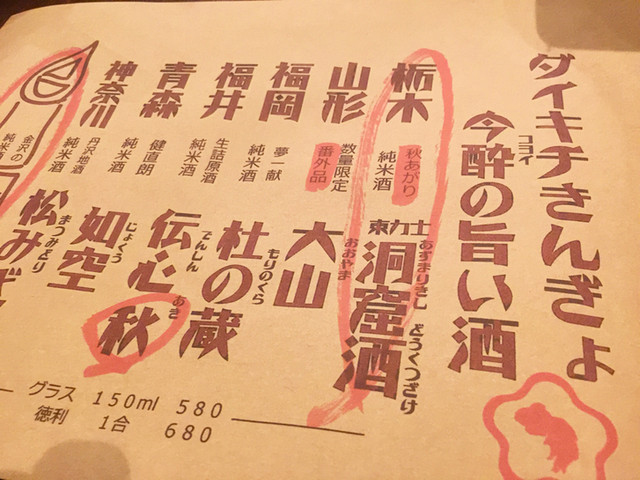 ダイキチきんぎょ
コヨイ
今酔の旨い酒
栃木
秋あがり
純米酒
あずまりきし
東力士
どうくつざけ
洞窟酒
山形
数量限定
番外品
おおやま
大山
福岡
夢一献
純米酒
もりのくら
杜の蔵
福井
生詰原酒
純米酒
でんしん
伝心
あき
秋
青森
健直朗
純米酒
じょくう
如空
神奈川
丹沢地酒
純米酒
まつみどり
松みど
金沢の
純米酒
グラス 150ml 580
徳利 1合 680